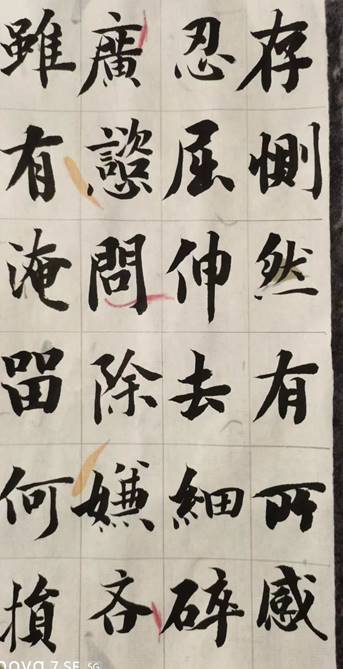 存惻然有所感
忍屈伸去細碎
廣諮問除嫌吝
雖有淹留何損
nova 7 SE 5G